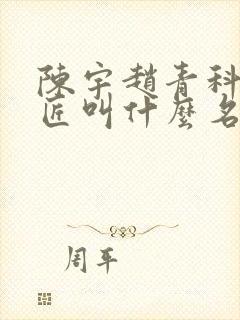 陳宇趙青科
匠叫什麼名
周平